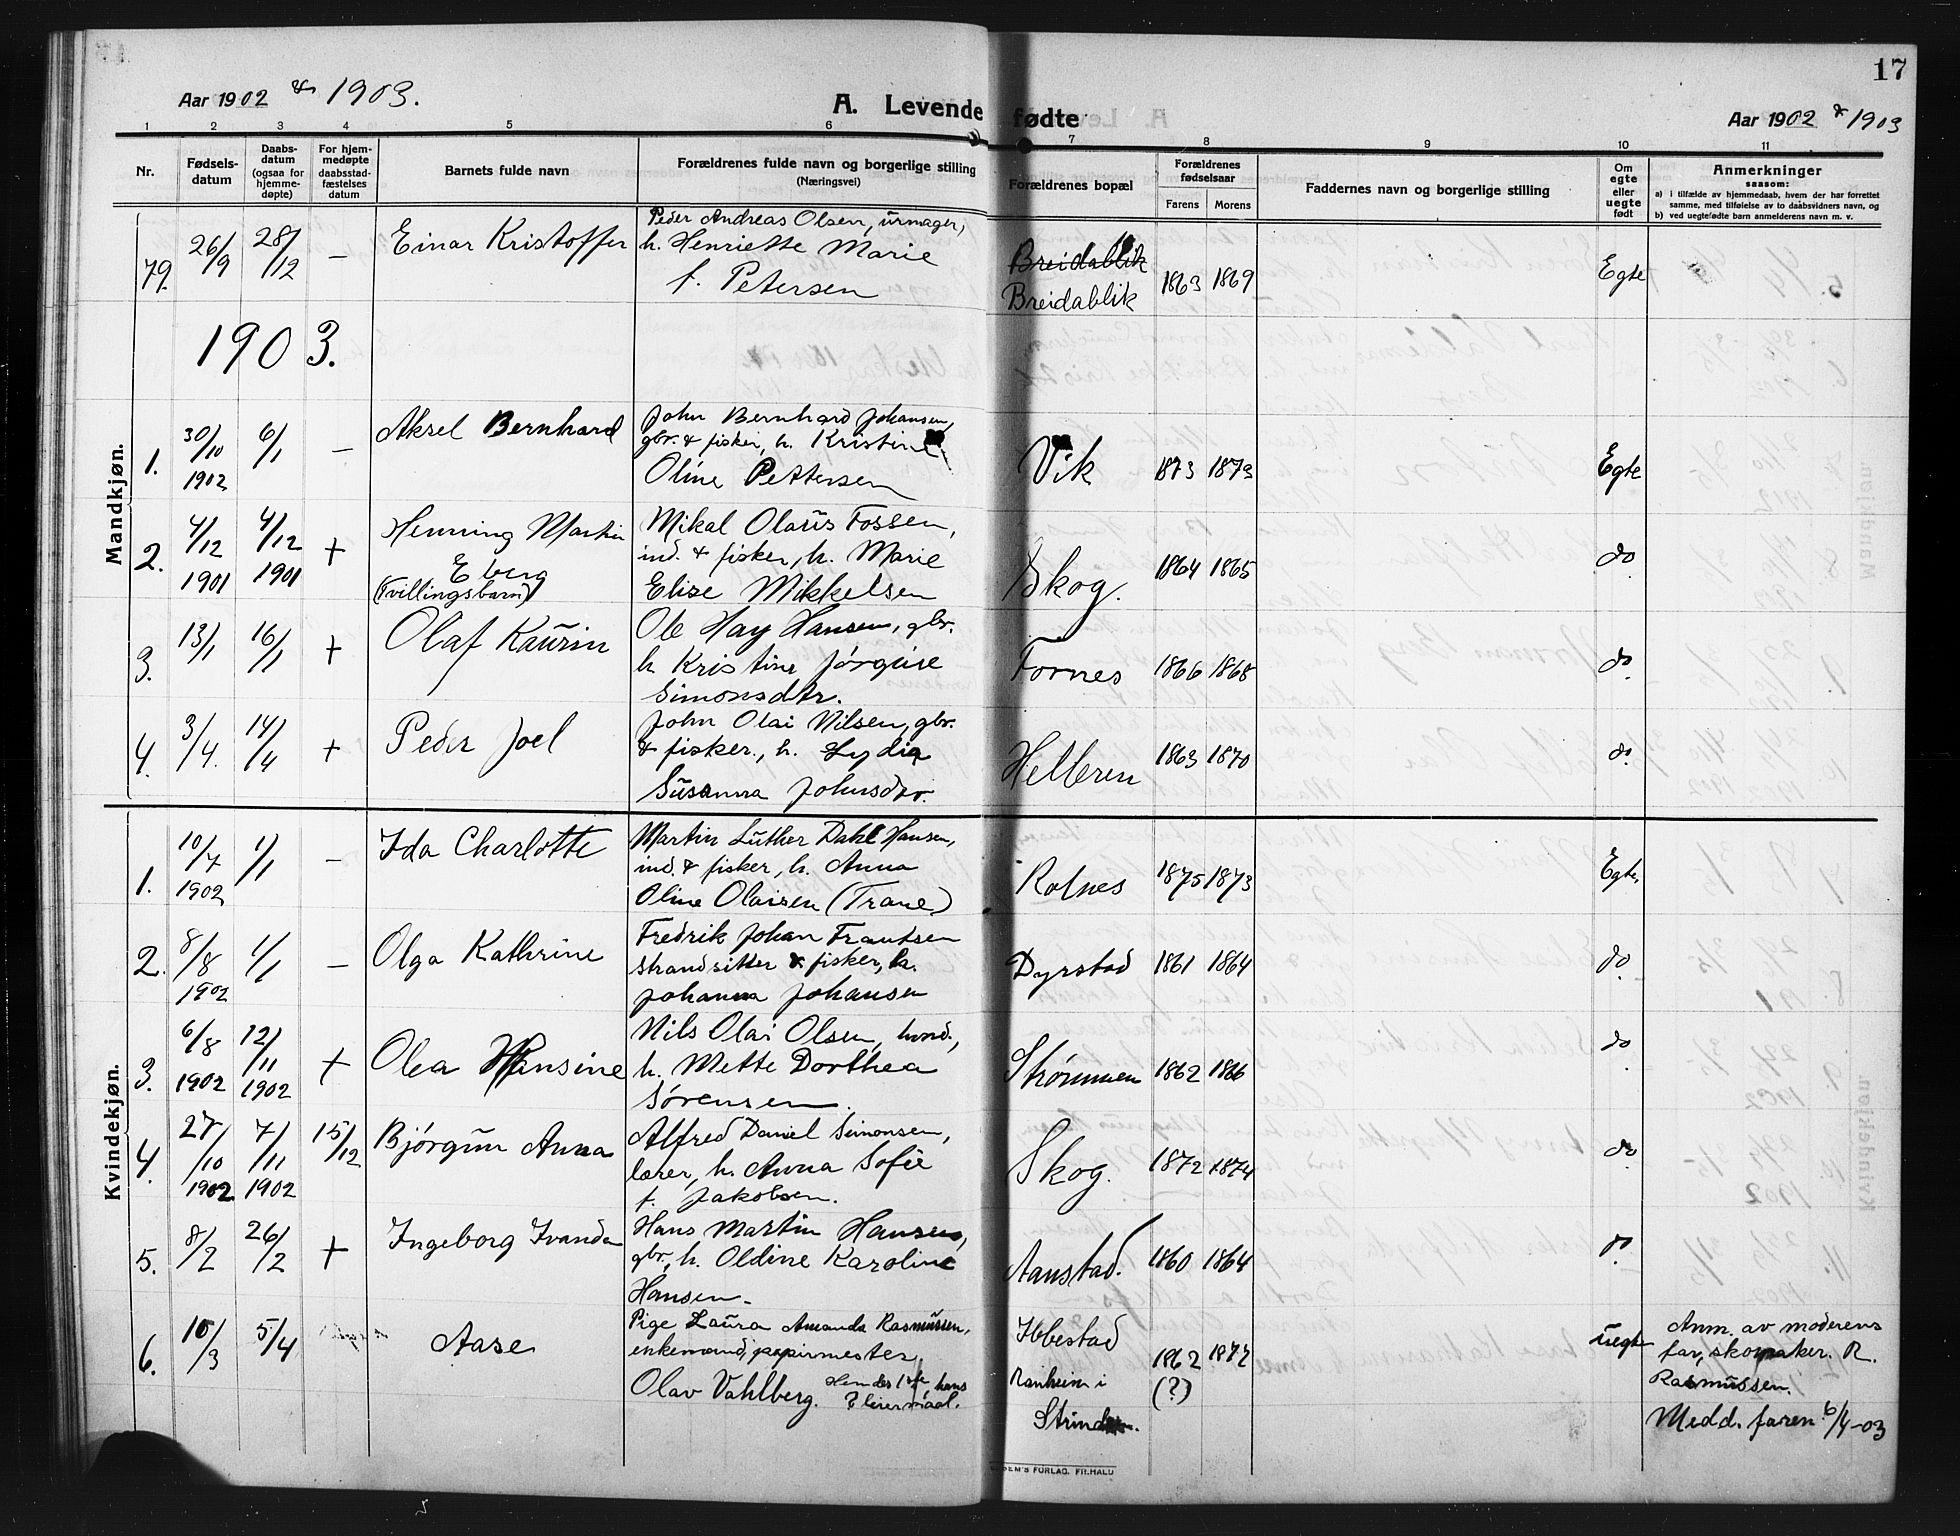 17
Aar 1902 & 1903.
A. Levende fødte
Aar 1902 & 1903
1 2 3 4 5 6 7 8 9 10 11
Nr.
Fødsels-
datum
Daabs-
datum
(ogsaa for
hjemme-
døpte)
For hjem-
medøpte
daabsstad-
fæstelses
datum
Barnets fulde navn
Forældrenes fulde navn og borgerlige stilling
(Næringsvei)
Forældrenes bopæl
Forældrenes
fødselsaar
Farens Morens
Faddernes navn og borgerlige stilling
Om
egte
eller
uegte
født
Anmerkninger
saasom:
a) i tilfælde av hjemmedaab, hvem der har forrettet
samme, med tilføielse av to daabsvidners navn, og
b) ved uegtefødte barn anmelderens navn m. v.
79. 26/9 28/12 – Einar Kristoffer
Peder Andreas Olsen, urmager,
h. Henriette Marie
f. Petersen
Breidablik
Breidablik
1863 1869 Egte
1903.
Mandkjøn.
1. 30/10 1902 6/1 – Aksel Bernhard
John Bernhard Johansen,
gbr. & fisker, h. Kristine
Oline Pettersen
Vik 1873 1873 Egte
2. 4/12 1901 4/12 1901 + Henning Martin
Eberg
(Tvillingsbarn)
Mikal Olaus Fossen,
ind. & fisker, h. Marie
Elise Mikkelsen
Skog. 1864 1865 do
3. 13/1 16/1 + Olaf Kaurin
Ole Hay Hansen, gbr.
h. Kristine Jørgine
Simonsdtr.
Fornes 1866 1868 do
4. 3/4. 14/4 + Peder Joel
John Olai Nilsen, gbr.
& fisker., h. Lydia
Susanna Johnsdtr.
Helleren 1863 1870 do
Kvindekjøn.
1. 10/7 1902 1/1 – Ida Charlotte
Martin Luther Dahl Hansen,
ind. & fisker, h. Anna
Oline Olaisen (Trane)
Rotnes 1875 1873 Egte
2. 8/8 1902 1/1 – Olga Kathrine
Fredrik Johan Frantsen
strandsitter & fisker, h.
Johanna Johansen
Dyrstad 1861 1864 do
3. 6/8 1902 12/11 1902 + Olea Hansine
Nils Olai Olsen, husmd.,
h. Mette Dorthea
Sørensen.
Strømmen 1862 1866 do
4. 27/10 1902 7/11 1902 15/12 Bjørgun Anna
Alfred Daniel Simonsen,
lærer, h. Anna Sofie
f. Jakobsen.
Skog. 1872 1874 do
5. 8/2 26/2 + Ingeborg Ivanda
Hans Martin Hansen,
gbr., h. Oldine Karoline
Hansen.
Aanstad. 1860 1864 do
6. 10/3 5/4 Aase
Pige Laura Amanda Rasmussen,
enkemand, papirmester
Olav Vahlberg. Hendes 1ste, hans
2 leiermaal.
Ibbestad
Ranheim i
Strinden.
1862 1877
(?)
uegte
Anm. av moderens
far, skomaker. R.
Rasmussen.
Medd. faren 6/4-03
FORLAG, FR.HALD